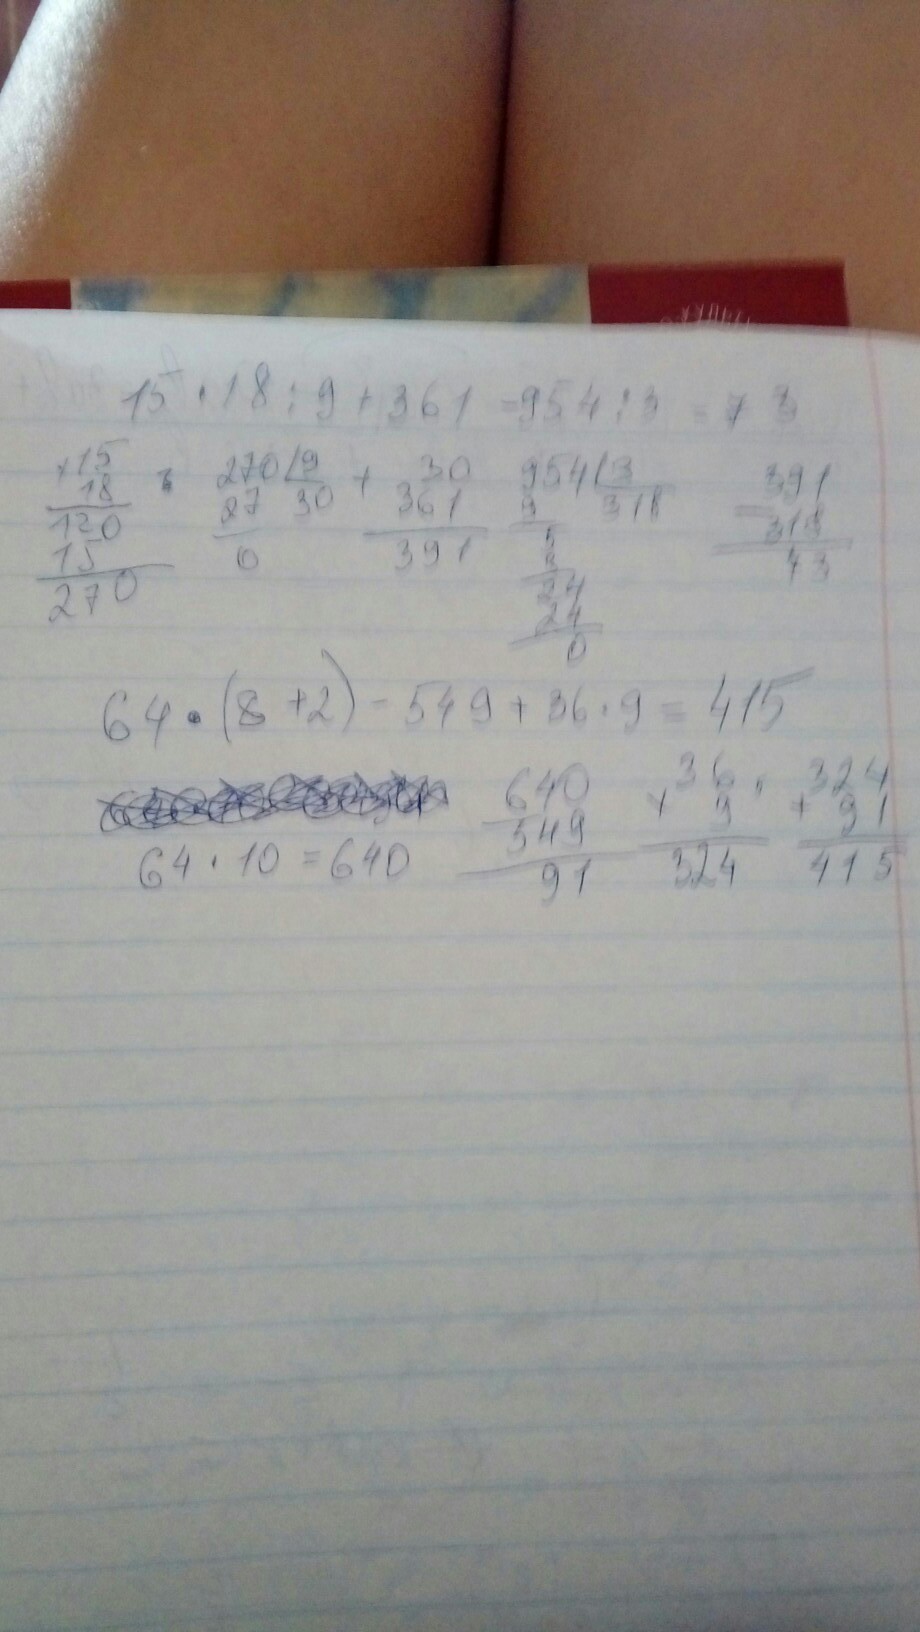 15 · 18 : 9 + 361 - 954 : 3 = 73
×15 : 270 9 + 30 954 3 391
18 27 30 361 9 318 318
120 0 391 5 73
15 3
270 24
24
0
64 · (8 + 2) - 549 + 36 · 9 = 415
64 · 10 = 640
640 ×36 324
549 9 +91
91 324 415